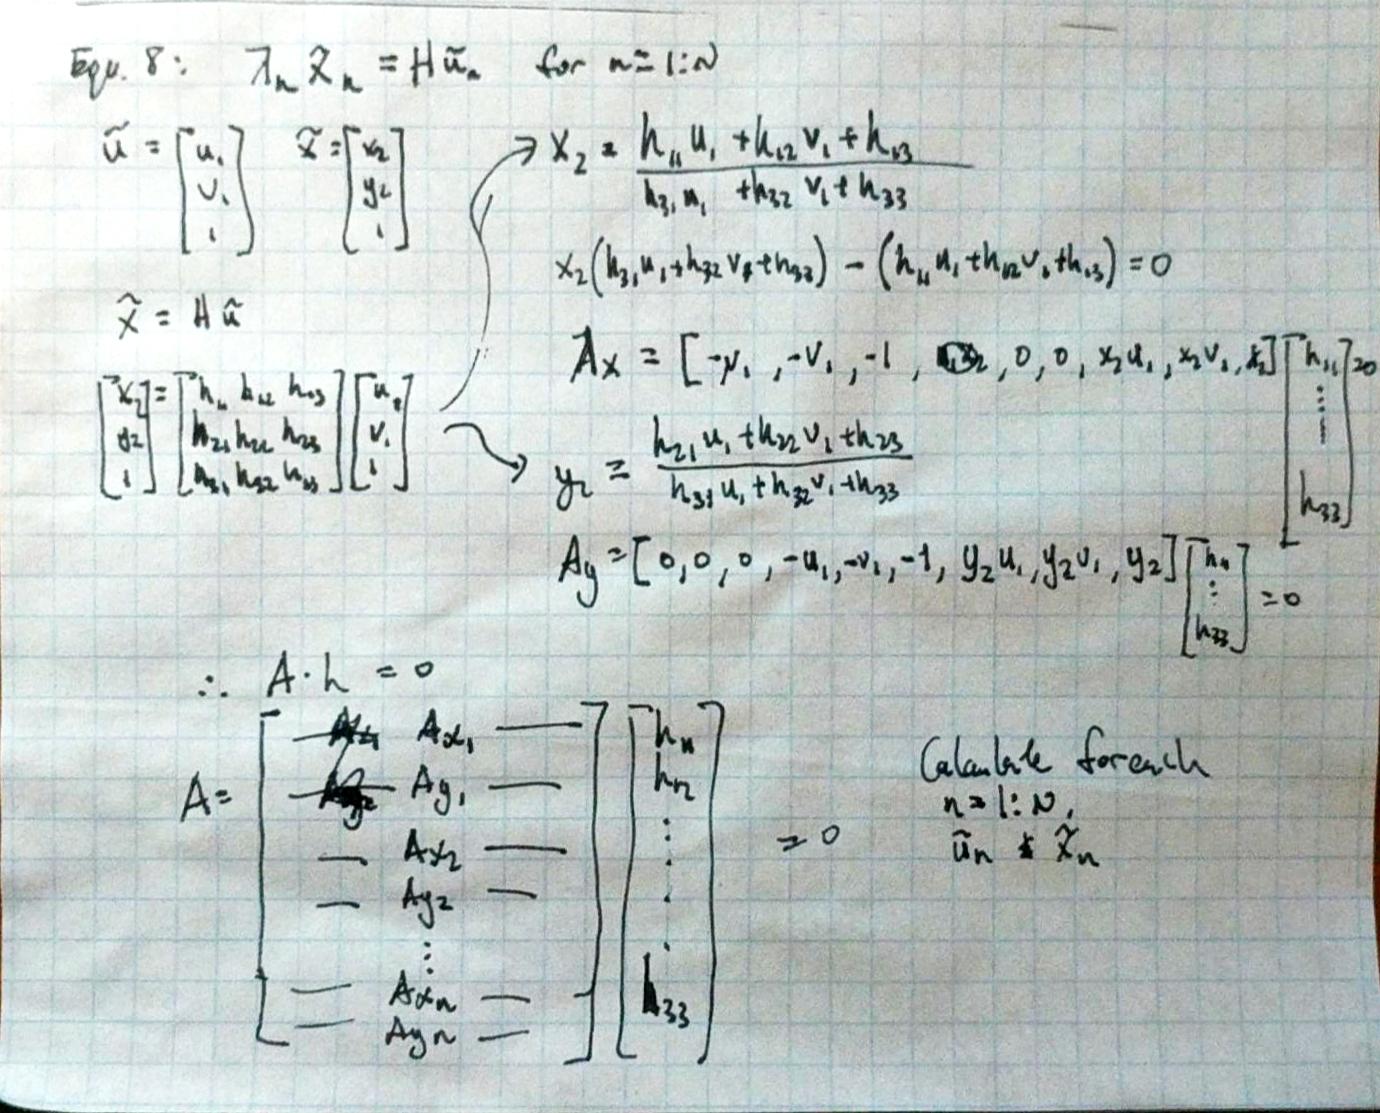 Equ. 8: λₙ x̃ₙ = H ũₙ for n = 1:N
ũ = [u₁ v₁ 1] x̃ = [x₂ y₂ 1]
x̃ = H ũ
[x₂ y₂ 1] = [h₁₁ h₁₂ h₁₃ h₂₁ h₂₂ h₂₃ h₃₁ h₃₂ h₃₃] [u₁ v₁ 1]
x₂ = h₁₁u₁ + h₁₂v₁ + h₁₃
h₃₁u₁ + h₃₂v₁ + h₃₃
x₂(h₃₁u₁ + h₃₂v₁ + h₃₃) - (h₁₁u₁ + h₁₂v₁ + h₁₃) = 0
Ax = [-u₁, -v₁, -1, 0, 0, 0, x₂u₁, x₂v₁, x₂] [h₁₁ ⋮ h₃₃] = 0
y₂ = h₂₁u₁ + h₂₂v₁ + h₂₃
h₃₁u₁ + h₃₂v₁ + h₃₃
Ay = [0, 0, 0, -u₁, -v₁, -1, y₂u₁, y₂v₁, y₂] [h₁₁ ⋮ h₃₃] = 0
∴ A·h = 0
A = [
Ax₁
Ay₁
Ax₂
Ay₂
⋮
Axₙ
Ayₙ
] [h₁₁ h₁₂ ⋮ h₃₃] = 0
Calculate for each
n = 1:N,
ũₙ & x̃ₙ